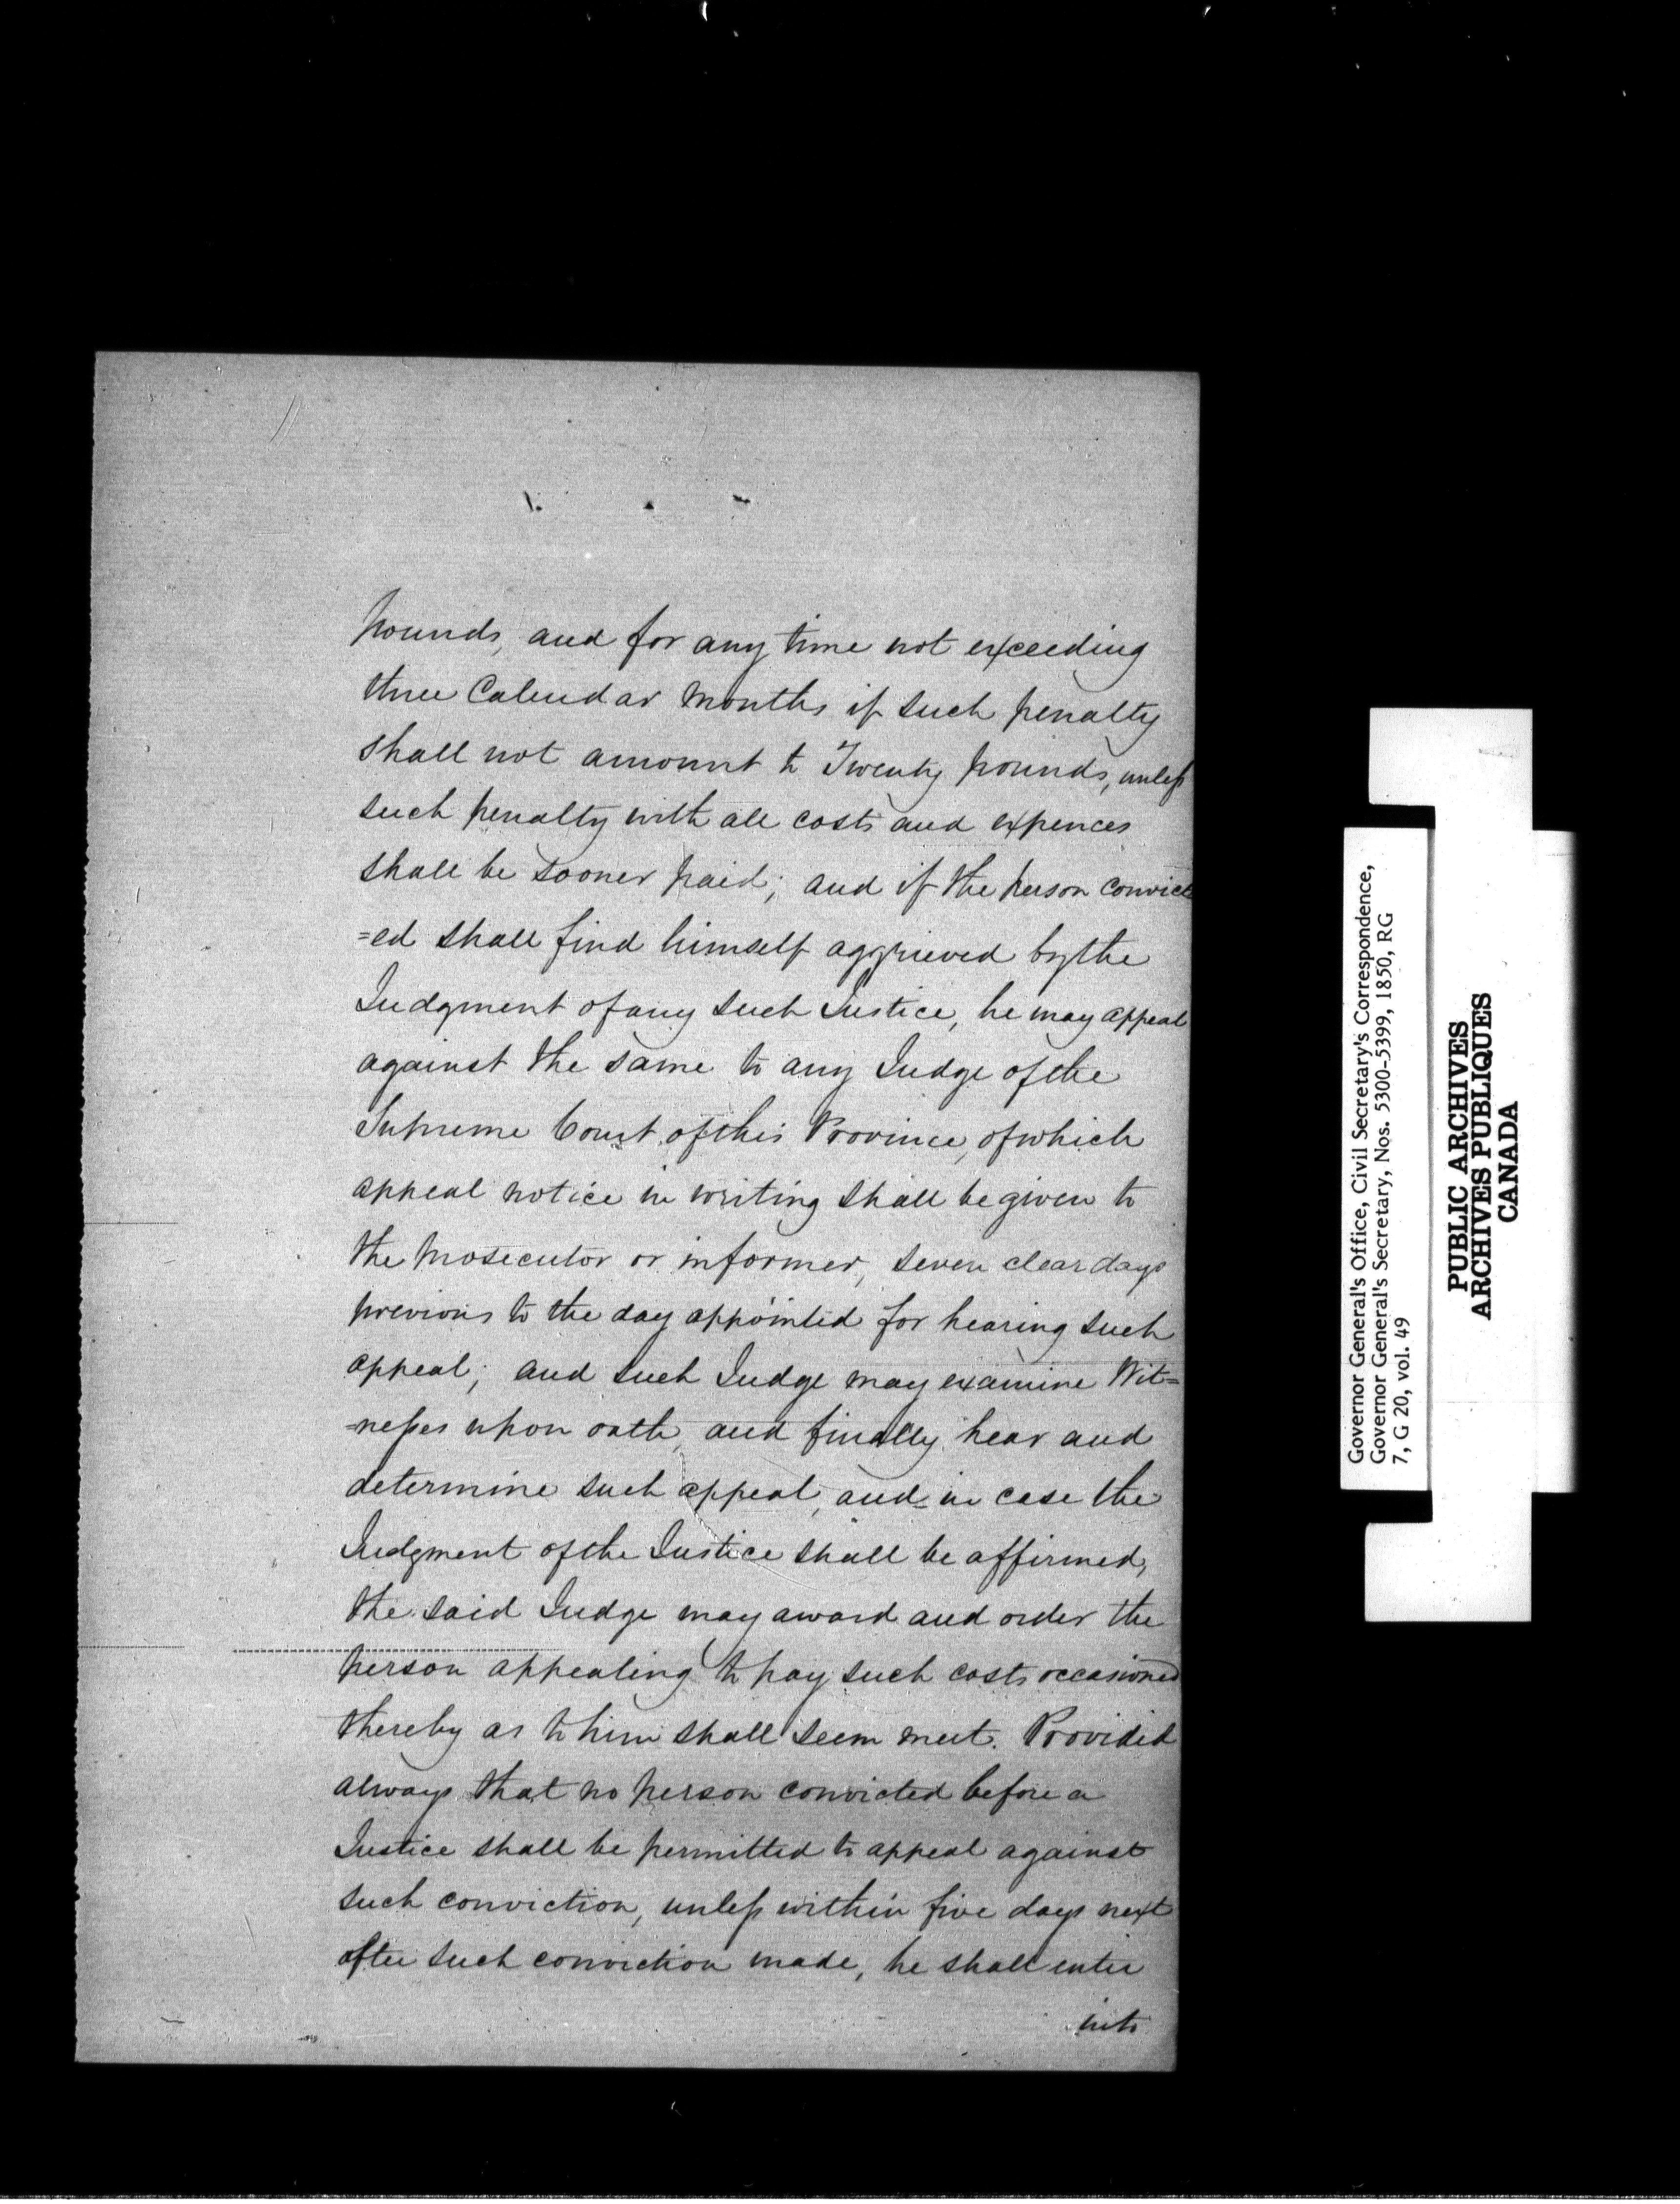 pounds, and for any time not exceeding
three Calendar Months if such penalty
shall not amount to Twenty pounds, unless
such penalty with all costs and expences
shall be sooner paid; and if the person convict
=ed shall find himself aggrieved by the
Judgment of any such Justice, he may appeal
against the same to any Judge of the
Supreme Court of this Province, of which
appeal notice in writing shall be given to
the prosecutor or informer, seven clear days
previous to the day appointed for hearing such
appeal; and such Judge may examine Wit=
=nesses upon oath, and finally hear and
determine such appeal, and in case the
Judgment of the Justice shall be affirmed,
the said Judge may award and order the
person appealing to pay such costs occasioned
thereby as to him shall seem meet. Provided
always that no person convicted before a
Justice shall be permitted to appeal against
such conviction, unless within five days next
after such conviction made, he shall enter
into
Governor General's Office, Civil Secretary's Correspondence,
Governor General's Secretary, Nos. 5300-5399, 1850, RG
7, G 20, vol. 49
PUBLIC ARCHIVES
ARCHIVES PUBLIQUES
CANADA